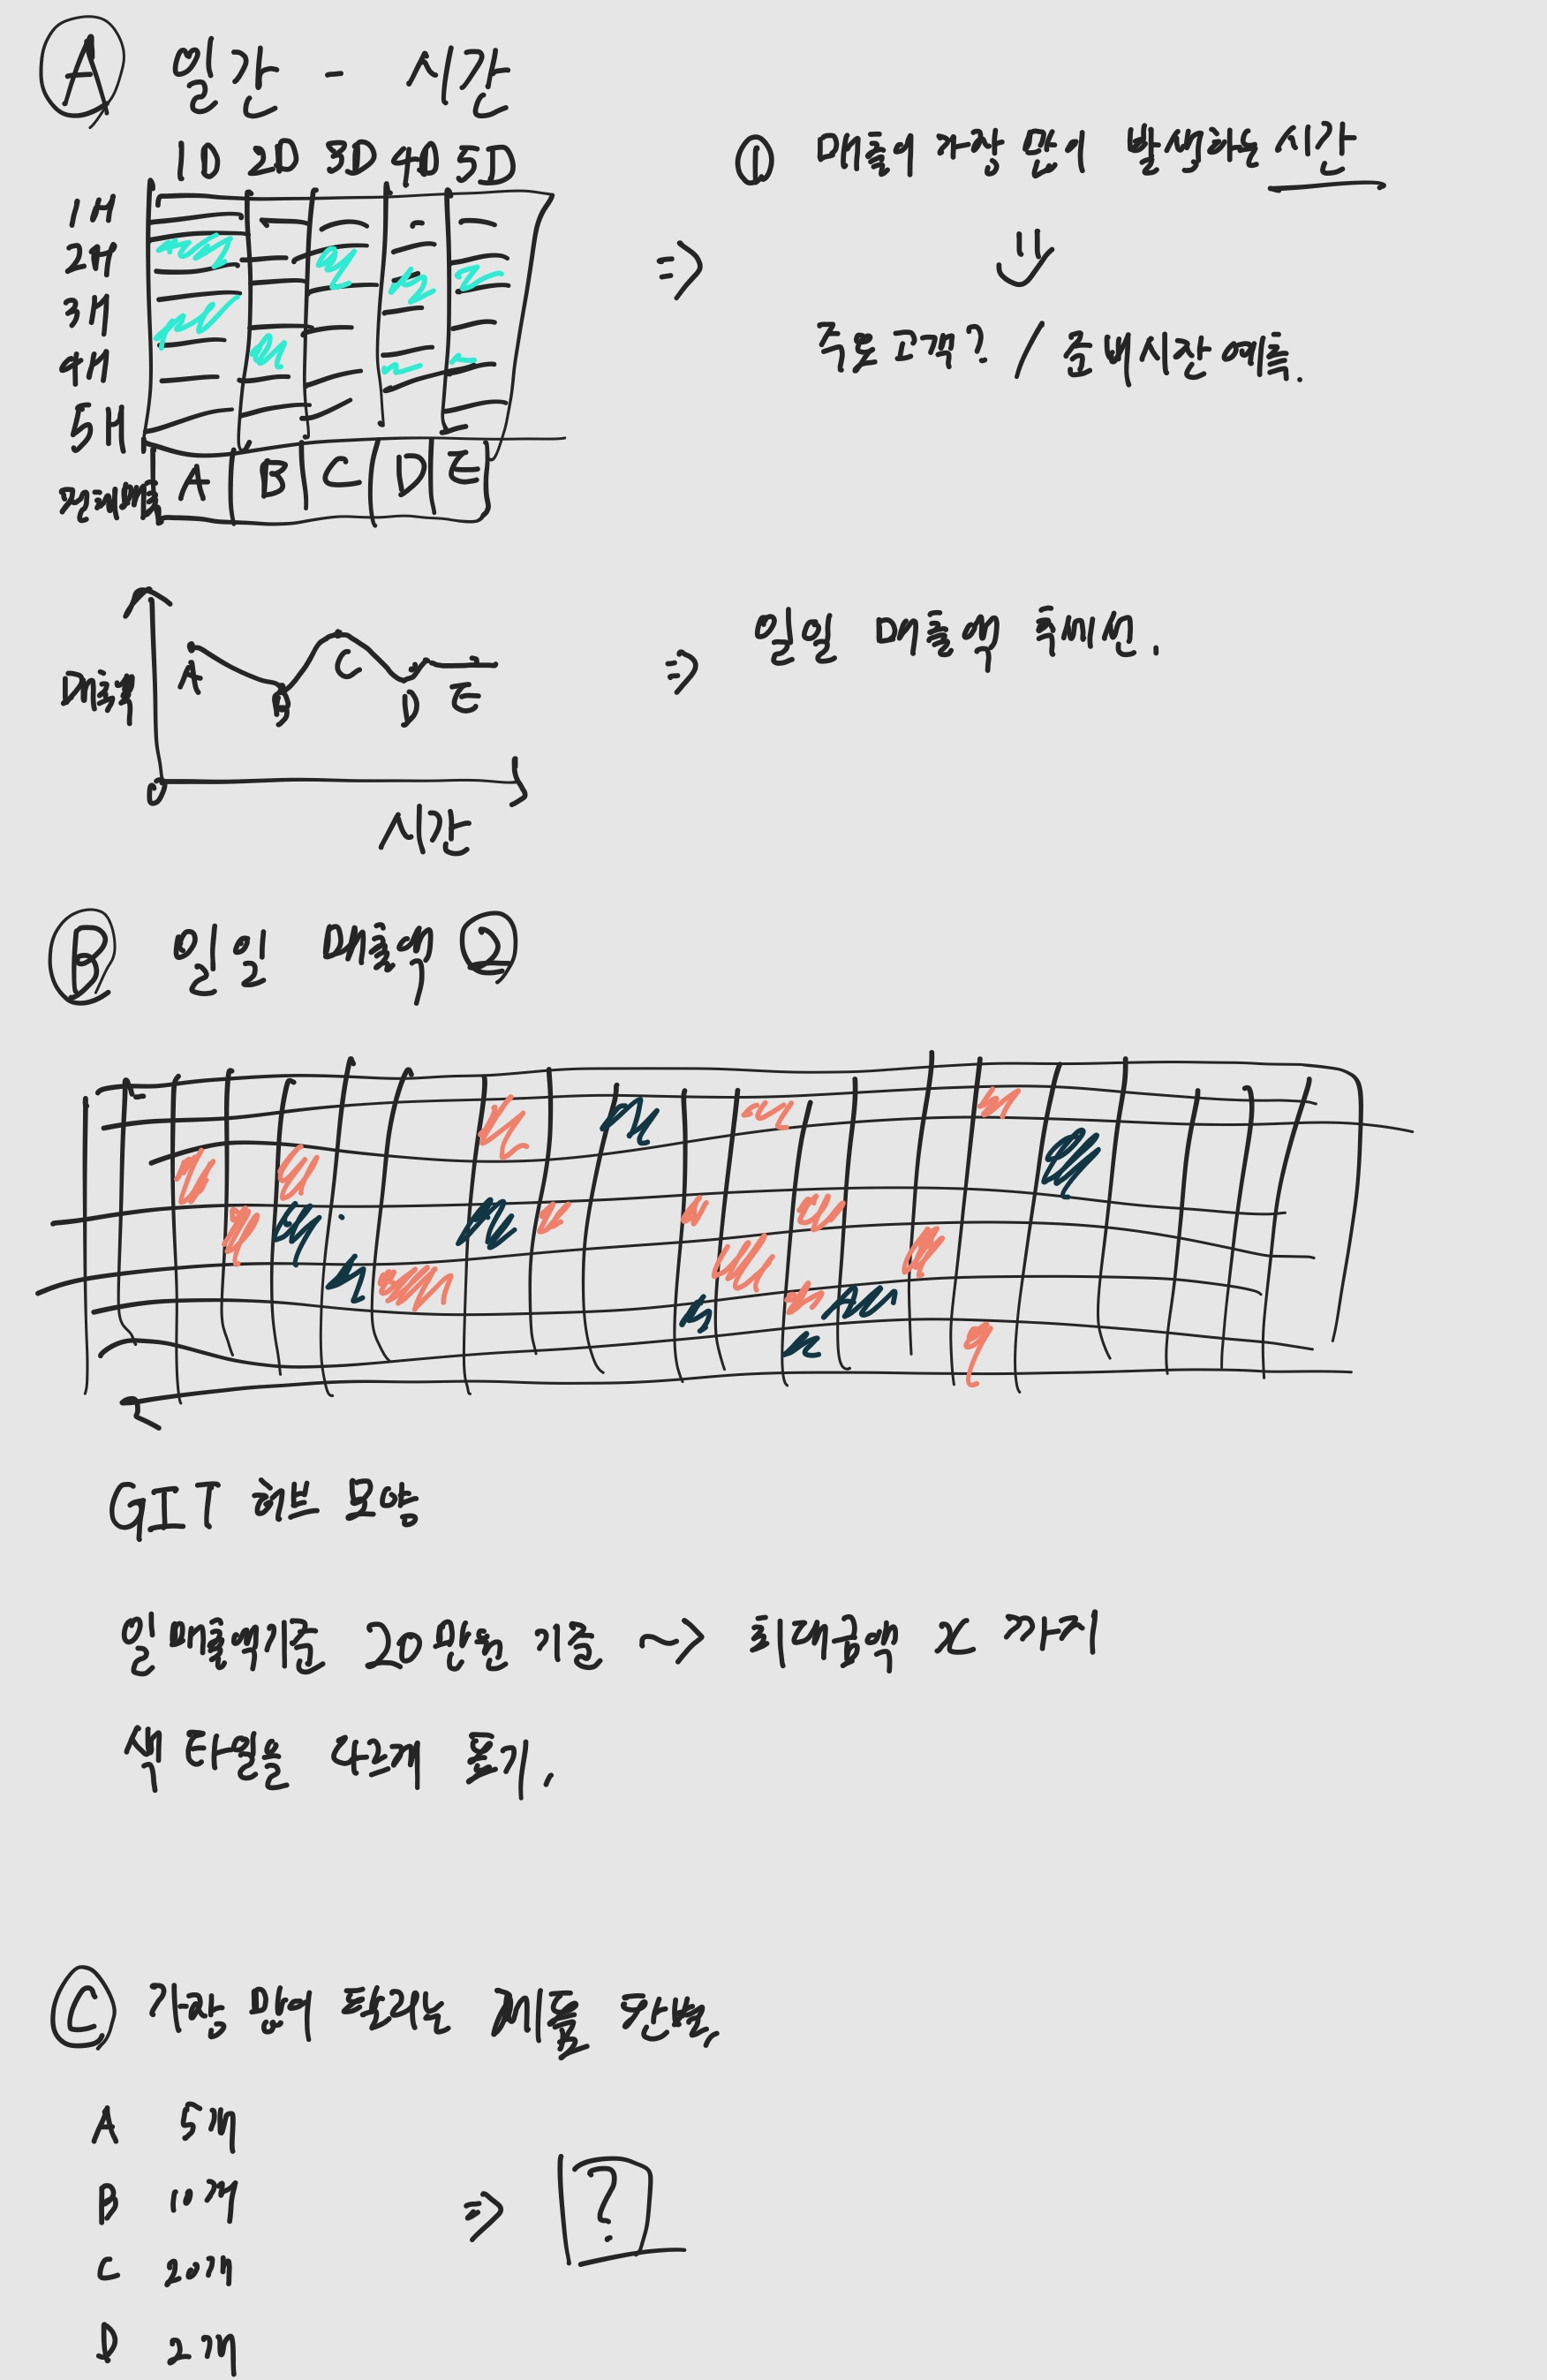 A 일간 - 시간
1D 2D 3D 4D 5D
1H
2H
3H
4H
5H
A B C D E
① 매출이 가장 많이 발생하는 시간
주요고객? / 혼잡시간 예측.
매출
A B C D E
0
시간
일일 매출액 추세선.
B 일일 매출액 ②
GIT 허브 모양
일 매출액기준 20만원 기준 ~> 최대금액 x 까지
색 타일을 다르게 표기.
C 가장 많이 팔리는 제품 판별.
A 5개
B 10개
C 20개
D 2개
?